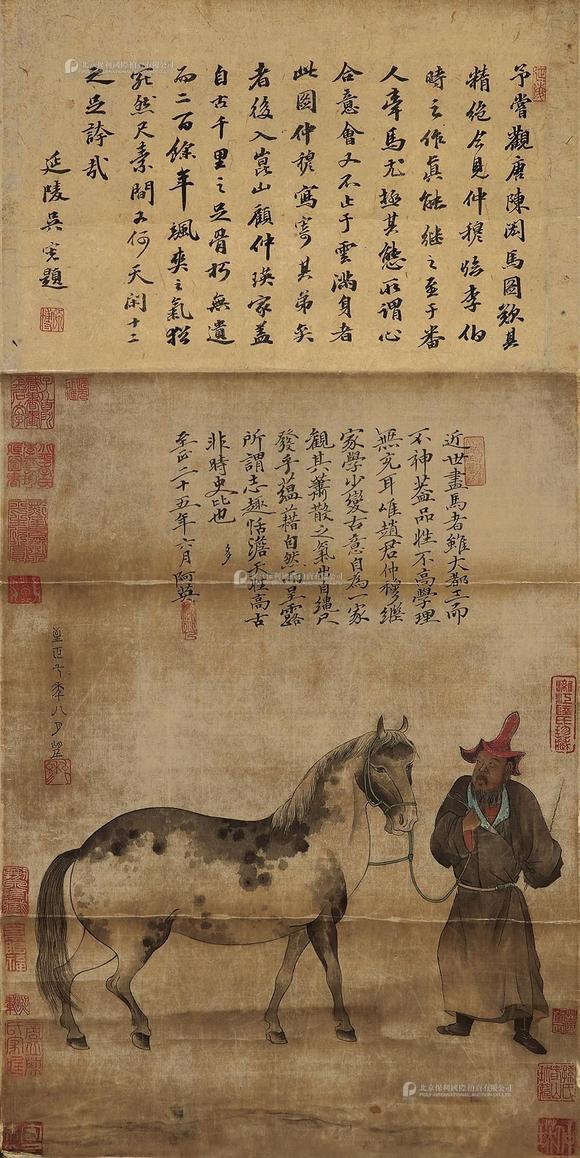 予嘗觀唐陳閎馬圖歎其
精絕今見仲穆臨李伯
時之作真能繼之至于番
人牽馬尤極其態所謂心
合意會又不止于雲滿身者
此圖仲穆寫寄其弟奚
者後入崑山顧仲瑛家蓋
自古千里之足骨朽無遺
而二百餘年颯爽之氣猶
宛然尺素間又何天閑十二
之足誇哉
延陵吳寬題
近世畫馬者雖大都工而
不神蓋品性不高學理
無充耳唯趙君仲穆繼
家學少變古意自為一家
觀其蕭散之氣出自縑尺
發乎蘊藉自然而呈露
所謂志趣恬澹天程高古
非時史比也
至正二十五年六月阿英
至正年八月望
北京保利國際拍賣有限公司
POLY INTERNATIONAL AUCTION CO.,LTD